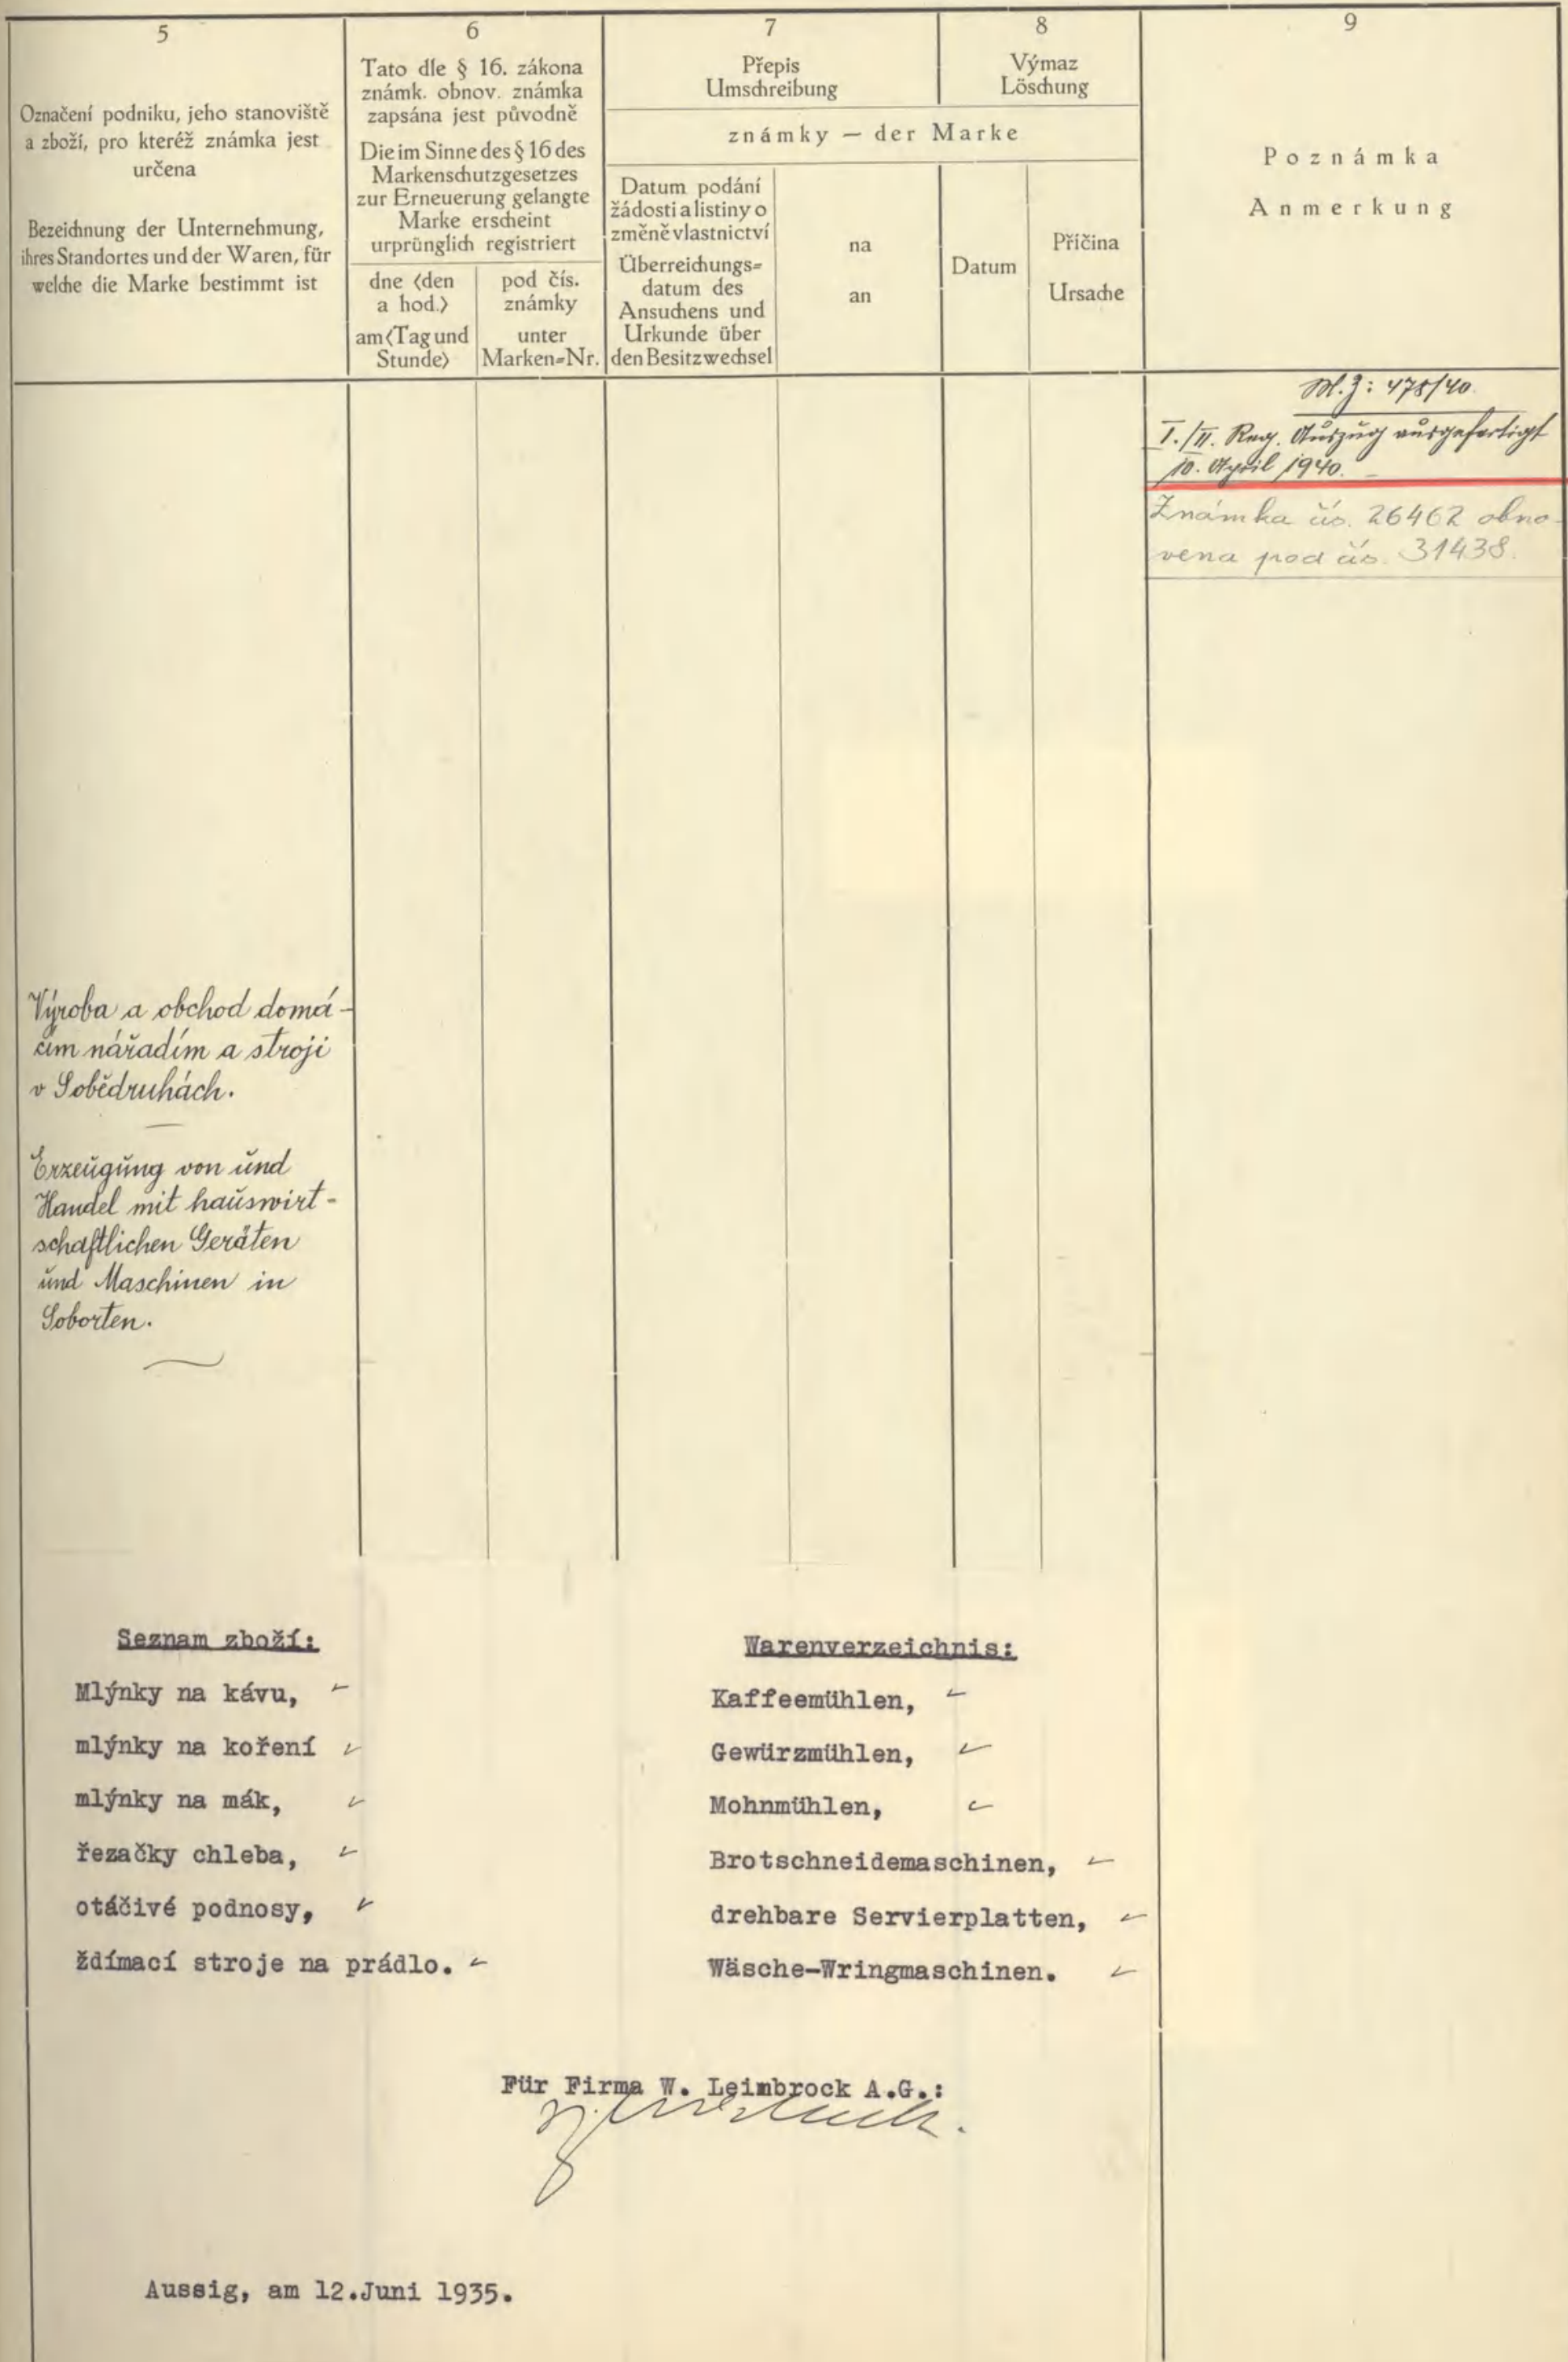 5
Označení podniku, jeho stanoviště
a zboží, pro kteréž známka jest
určena
Bezeichnung der Unternehmung,
ihres Standortes und der Waren, für
welche die Marke bestimmt ist
6
Tato dle § 16. zákona
známk. obnov. známka
zapsána jest původně
Die im Sinne des § 16 des
Markenschutzgesetzes
zur Erneuerung gelangte
Marke erscheint
urprünglich registriert
dne (den
a hod.)
am (Tag und
Stunde)
pod čís.
známky
unter
Marken=Nr.
7
Přepis
Umschreibung
8
Výmaz
Löschung
známky — der Marke
Datum podání
žádosti a listiny o
změně vlastnictví
Überreichungs=
datum des
Ansuchens und
Urkunde über
den Besitzwechsel
na
an
Datum
Příčina
Ursache
9
Poznámka
Anmerkung
M.Z: 478/40.
I./II. Reg. Auszug ausgefertigt
10. April 1940.
Známka čís. 26462 obno-
vena pod čís. 31438.
Výroba a obchod domá-
cím nářadím a stroji
v Sobědruhách.
Erzeugung von und
Handel mit hauswirt-
schaftlichen Geräten
und Maschinen in
Soborten.
Seznam zboží:
Mlýnky na kávu,
mlýnky na koření
mlýnky na mák,
řezačky chleba,
otáčivé podnosy,
ždímací stroje na prádlo.
Warenverzeichnis:
Kaffeemühlen,
Gewürzmühlen,
Mohnmühlen,
Brotschneidemaschinen,
drehbare Servierplatten,
Wäsche-Wringmaschinen.
Für Firma W. Leimbrock A.G.:
Aussig, am 12.Juni 1935.